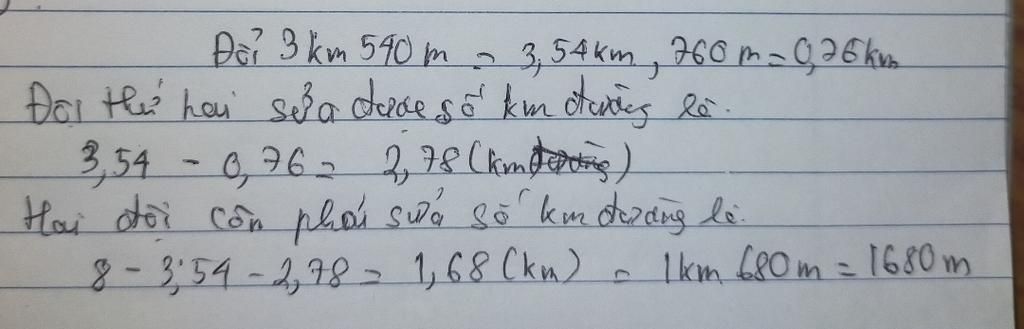 Đổi 3 km 540 m = 3,54 km, 760 m = 0,76 km
Đội thứ hai sửa được số km đường là.
3,54 - 0,76 = 2,78 (km)
Hai đội còn phải sửa số km đường là.
8 - 3,54 - 2,78 = 1,68 (km) = 1 km 680 m = 1680 m